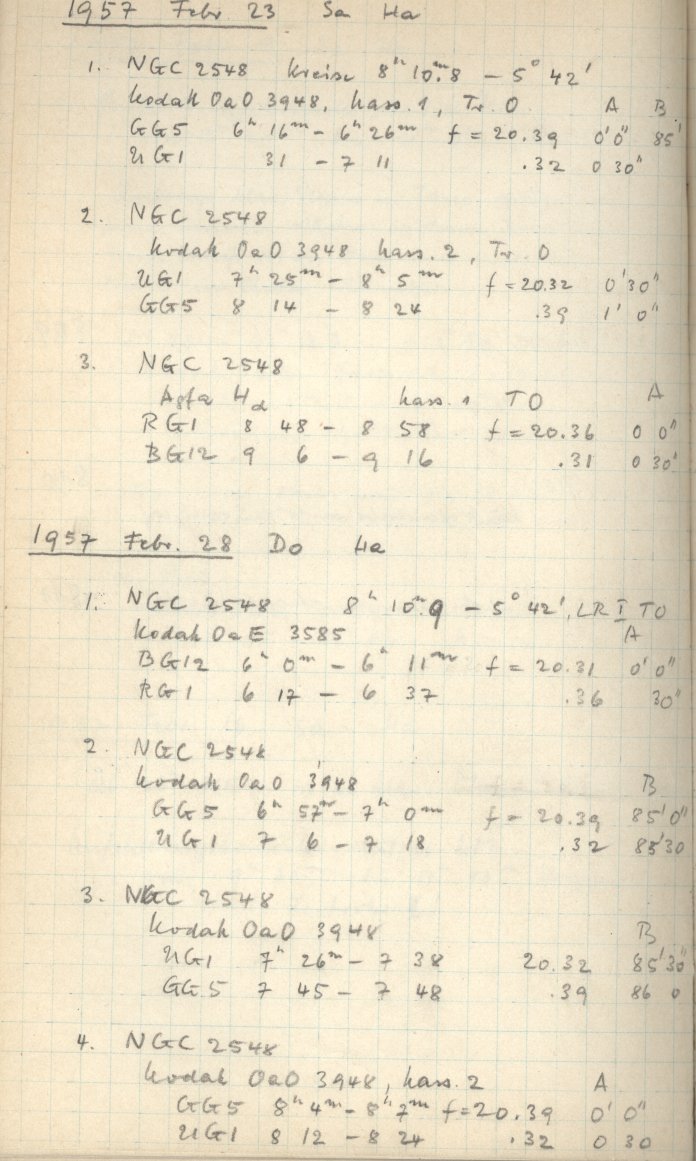 1957 Febr 23 Sa Ha
1. NGC 2548 Kreise 8ʰ 10ᵐ.8 – 5° 42'
Kodak OaO 3948, Kass. 1, Tr. O A B
GG5 6ʰ 16ᵐ – 6ʰ 26ᵐ f = 20.39 0'0" 85'
UG1 31 – 7 11 .32 0 30"
2. NGC 2548
Kodak OaO 3948 Kass. 2, Tr. O
UG1 7ʰ 25ᵐ – 8ʰ 5ᵐ f = 20.32 0'30"
GG5 8 14 – 8 24 .39 1' 0"
3. NGC 2548
Agfa Hd Kass. 1 TO A
RG1 8 48 – 8 58 f = 20.36 0 0"
BG12 9 6 – 9 16 .31 0 30"
1957 Febr. 28 Do Ha
1. NGC 2548 8ʰ 10ᵐ.9 – 5° 42', LR I TO
Kodak OaE 3585 A
BG12 6ʰ 0ᵐ – 6ʰ 11ᵐ f = 20.31 0'0"
RG1 6 17 – 6 37 .36 30"
2. NGC 2548
Kodak OaO 3948 B
GG5 6ʰ 57ᵐ – 7ʰ 0ᵐ f = 20.39 85'0"
UG1 7 6 – 7 18 .32 85'30
3. NGC 2548
Kodak OaO 3948 B
UG1 7ʰ 26ᵐ – 7 38 20.32 85'30"
GG5 7 45 – 7 48 .39 86 0
4. NGC 2548
Kodak OaO 3948, Kass. 2 A
GG5 8ʰ 4ᵐ – 8ʰ 7ᵐ f = 20.39 0' 0"
UG1 8 12 – 8 24 .32 0 30